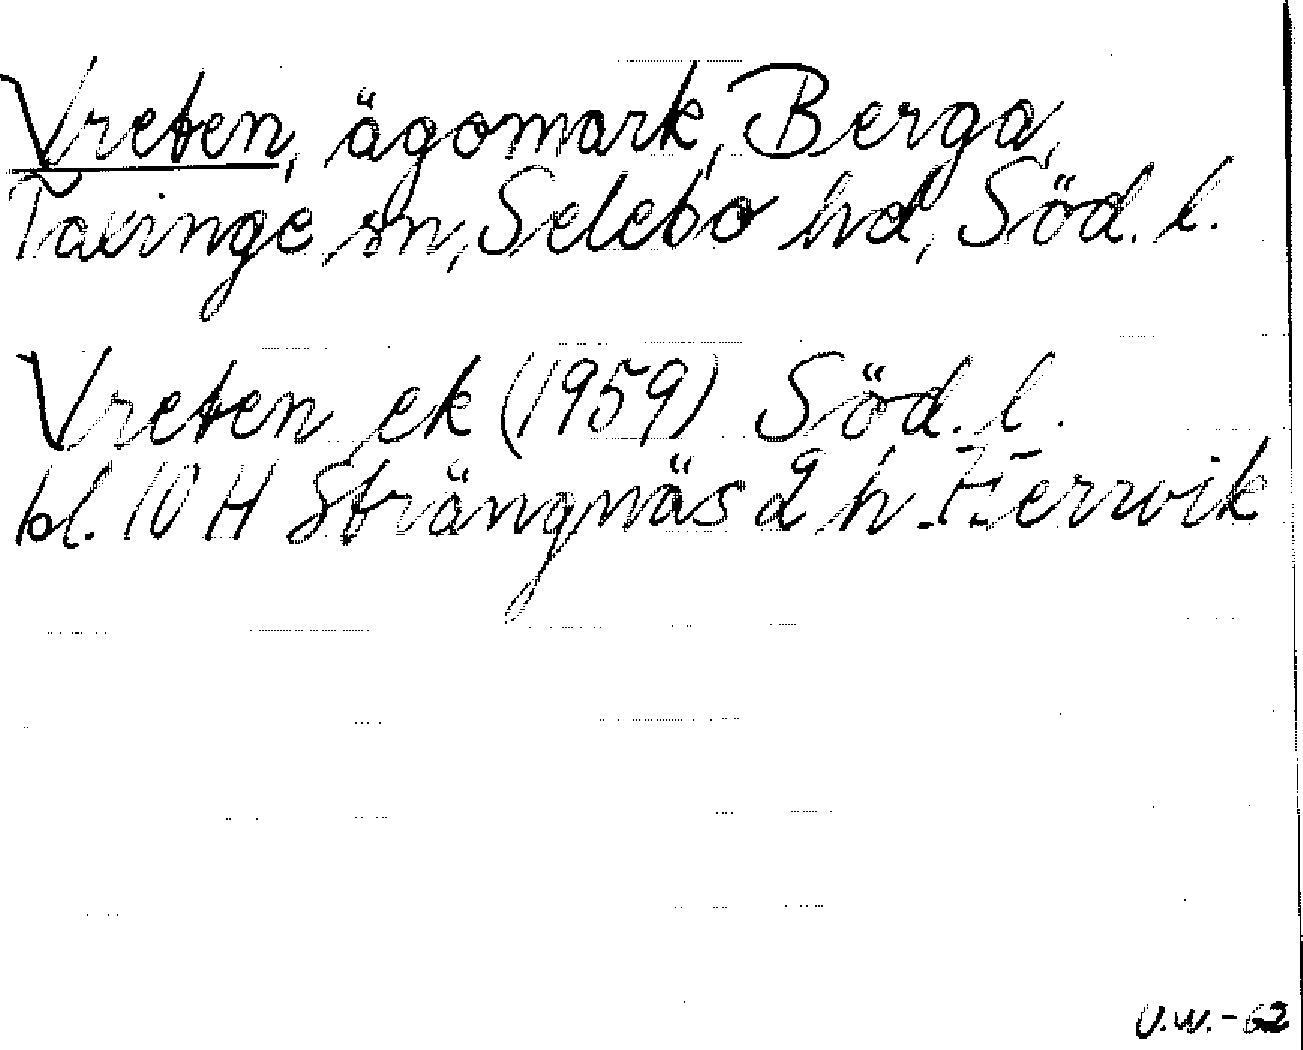 Vreten, ägomark, Berga,
Taxinge sn, Selebo hd, Söd. l.
Vreten ek (1959) Söd. l.
bl. 10 H Strängnäs d h. Herrvik
U.W.-62